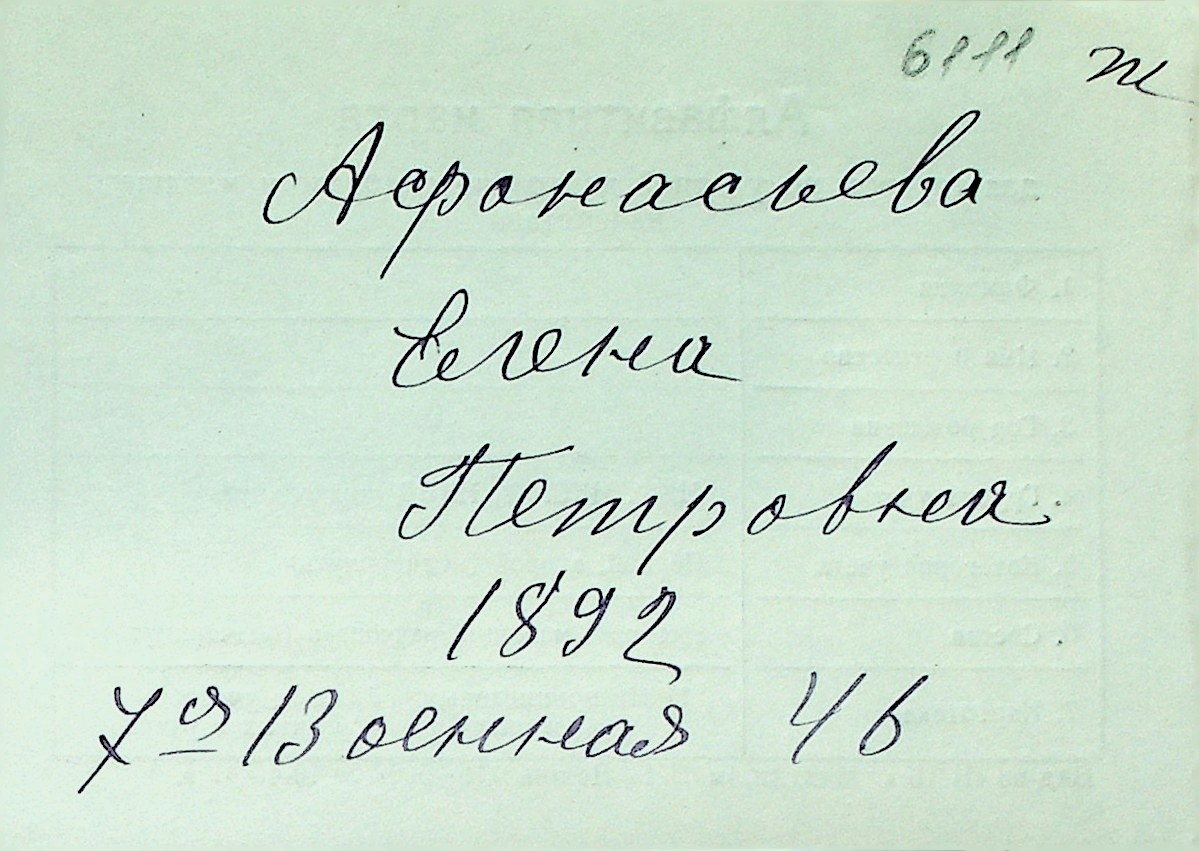 6111 ж
Афонасьева
Елена
Петровна
1892
7ая Военная 46